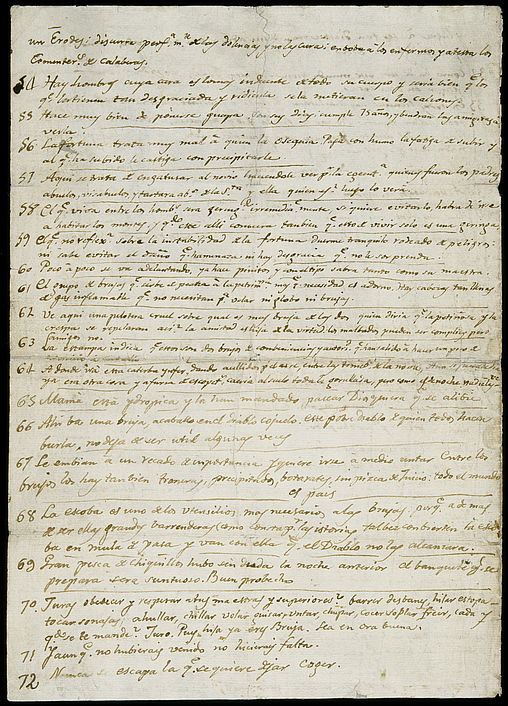 un Erodes: discurra perf.ª m.te de las dolencias y no las cura: emboba a los enfermos, y atesta los
Comenter.s de Calaberas.
54 Hay hombres cuya cara es lo mas indecente de todo su cuerpo y seria bien q.e los
q.e la tienen tan desgraciada y ridicula se la metieran en los calzones
55 Hace muy bien de ponerse guapa. Son sus dias; cumple 75 años, y vendran las amiguitas a
verla.
56 La fortuna trata muy mal a quien la obsequia. Paga con humo la fatiga de subir y
al q.e ha subido le castiga con precipitarle
57 Aqui se trata de engatusar al novio haciendole ver quienes fueron los padres,
abuelos, visabuelos, y tartarabuelos de la y ella quien es? luego lo verá.
58 El q.e viva entre los hombres será irremediablemente, si quiere evitarlo, habra de irse
a habitar los montes, y q.do este alli conocera tambien q.e esto de vivir solo es una
59 El q.e no reflex.e sobre la instabilidad de la fortuna duerme tranquilo rodeado de peligros:
ni sabe evitar el daño q.e hamenaza ni hay desgracia q.e no le sorprenda.
60 Poco a poco se va adelantando, ya hace pinitos y con el tpo sabra tanto como su maestra.
61 El grupo de brujas q.e sirve de peana a la mas q.e necesidad es adorno. Hay cabezas tan llenas
de gas inflamable q.e no necesitan p.a volar ni globo ni brujas.
62 Ve aqui una pelotera cruel sobre qual es mas bruja de las dos quien diria q.e la petiñosa y la
crespa se repelaran asi? la amistad es hija de la virtud: los malbados pueden ser complices pero
amigos no.
63 La estampa indica
64 A donde irá esta caterba dando aullidos por el aire, entre las
ya era otra cosa y a fuerza de escopet.s caeria al suelo toda la gorullada, pero como es de noche nadie las ve.
65 Mamá está ydropica y la han mandado pasear Dios quiera q.e se alibie
66 Allá ba una bruja, acaballo en el Diablo cojuelo. Este pobre diablo de quien todos hacen
burla, no deja de ser util algunas veces
67 Le embian a un recado de importancia y quiere irse a medio untar. Entre los
brujos los hay tambien troneras, precipitados, botarates, sin pizca de juicio: todo el mundo
es pais
68 La escoba es uno de los utensilios mas necesarios a las brujas, porq.e a de mas
de ser ellas grandes barrenderas (como consta p.r las istorias) talbez conbierten la esco
ba en mula de paso y van con ella q.e el Diablo no las alcanzara.
69 Gran pesca de chiquillos hubo sin duda la noche anterior el banquete q.e se
prepara sera suntuoso. Buen probecho
70 Juras obedecer y respetar a tus maestras y superiores? barrer desbanes, hilar estopa
tocar sonajas, ahullar, chillar volar guisar, untar, chupar, cocer soplar freir, cada y
q.do se te mande? Juro. Pues hija ya eres Bruja. Sea en ora buena.
71 Y aunq.e no hubierais venido no hicierais falta.
72 Nunca se escapa la q.e se quiere dejar coger.